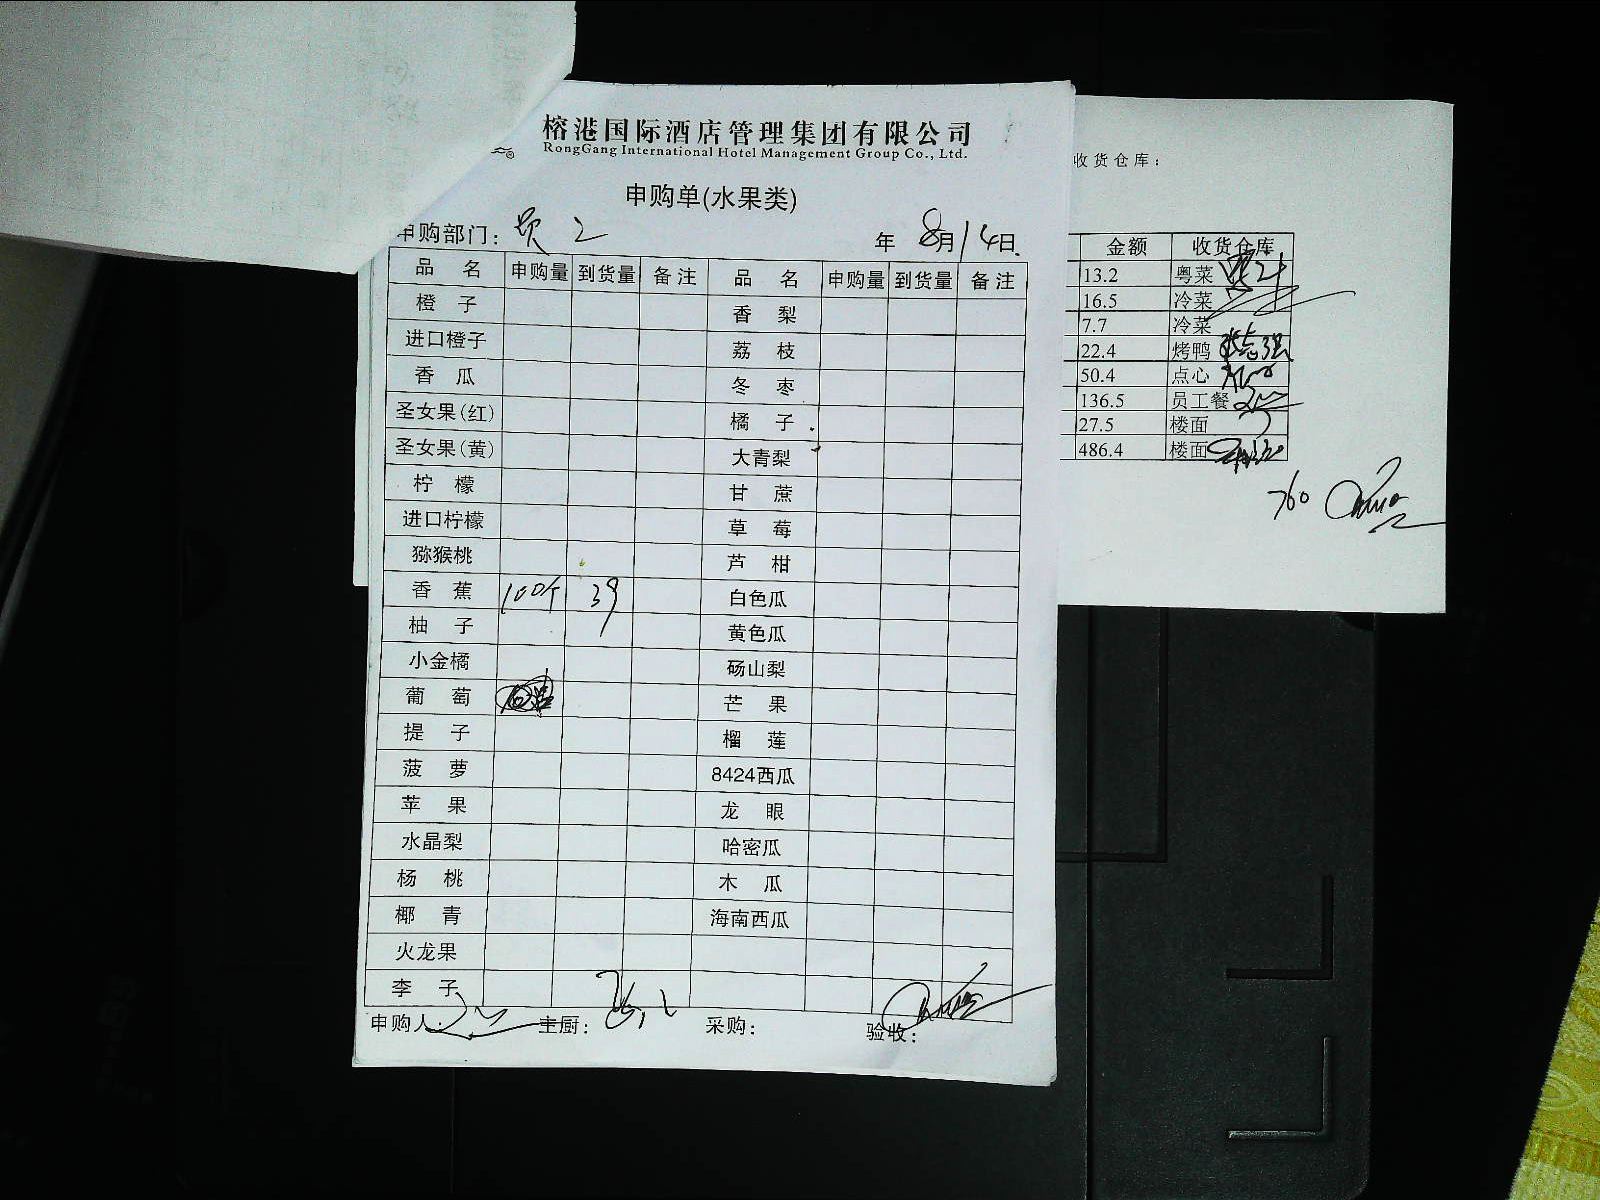 榕港国际酒店管理集团有限公司
RongGang International Hotel Management Group Co., Ltd.
申购单(水果类)
申购部门: 员工 年 8月14日
品 名 申购量 到货量 备注 品 名 申购量 到货量 备注
橙 子 香 梨
进口橙子 荔 枝
香 瓜 冬 枣
圣女果(红) 橘 子
圣女果(黄) 大青梨
柠 檬 甘 蔗
进口柠檬 草 莓
猕猴桃 芦 柑
香 蕉 100个 39 白色瓜
柚 子 黄色瓜
小金橘 砀山梨
葡 萄 芒 果
提 子 榴 莲
菠 萝 8424西瓜
苹 果 龙 眼
水晶梨 哈密瓜
杨 桃 木 瓜
椰 青 海南西瓜
火龙果
李 子
申购人: 主厨: 76.2 采购: 验收:
收货仓库:
金额 收货仓库
13.2 粤菜
16.5 冷菜
7.7 冷菜
22.4 烤鸭
50.4 点心
136.5 员工餐
27.5 楼面
486.4 楼面
760